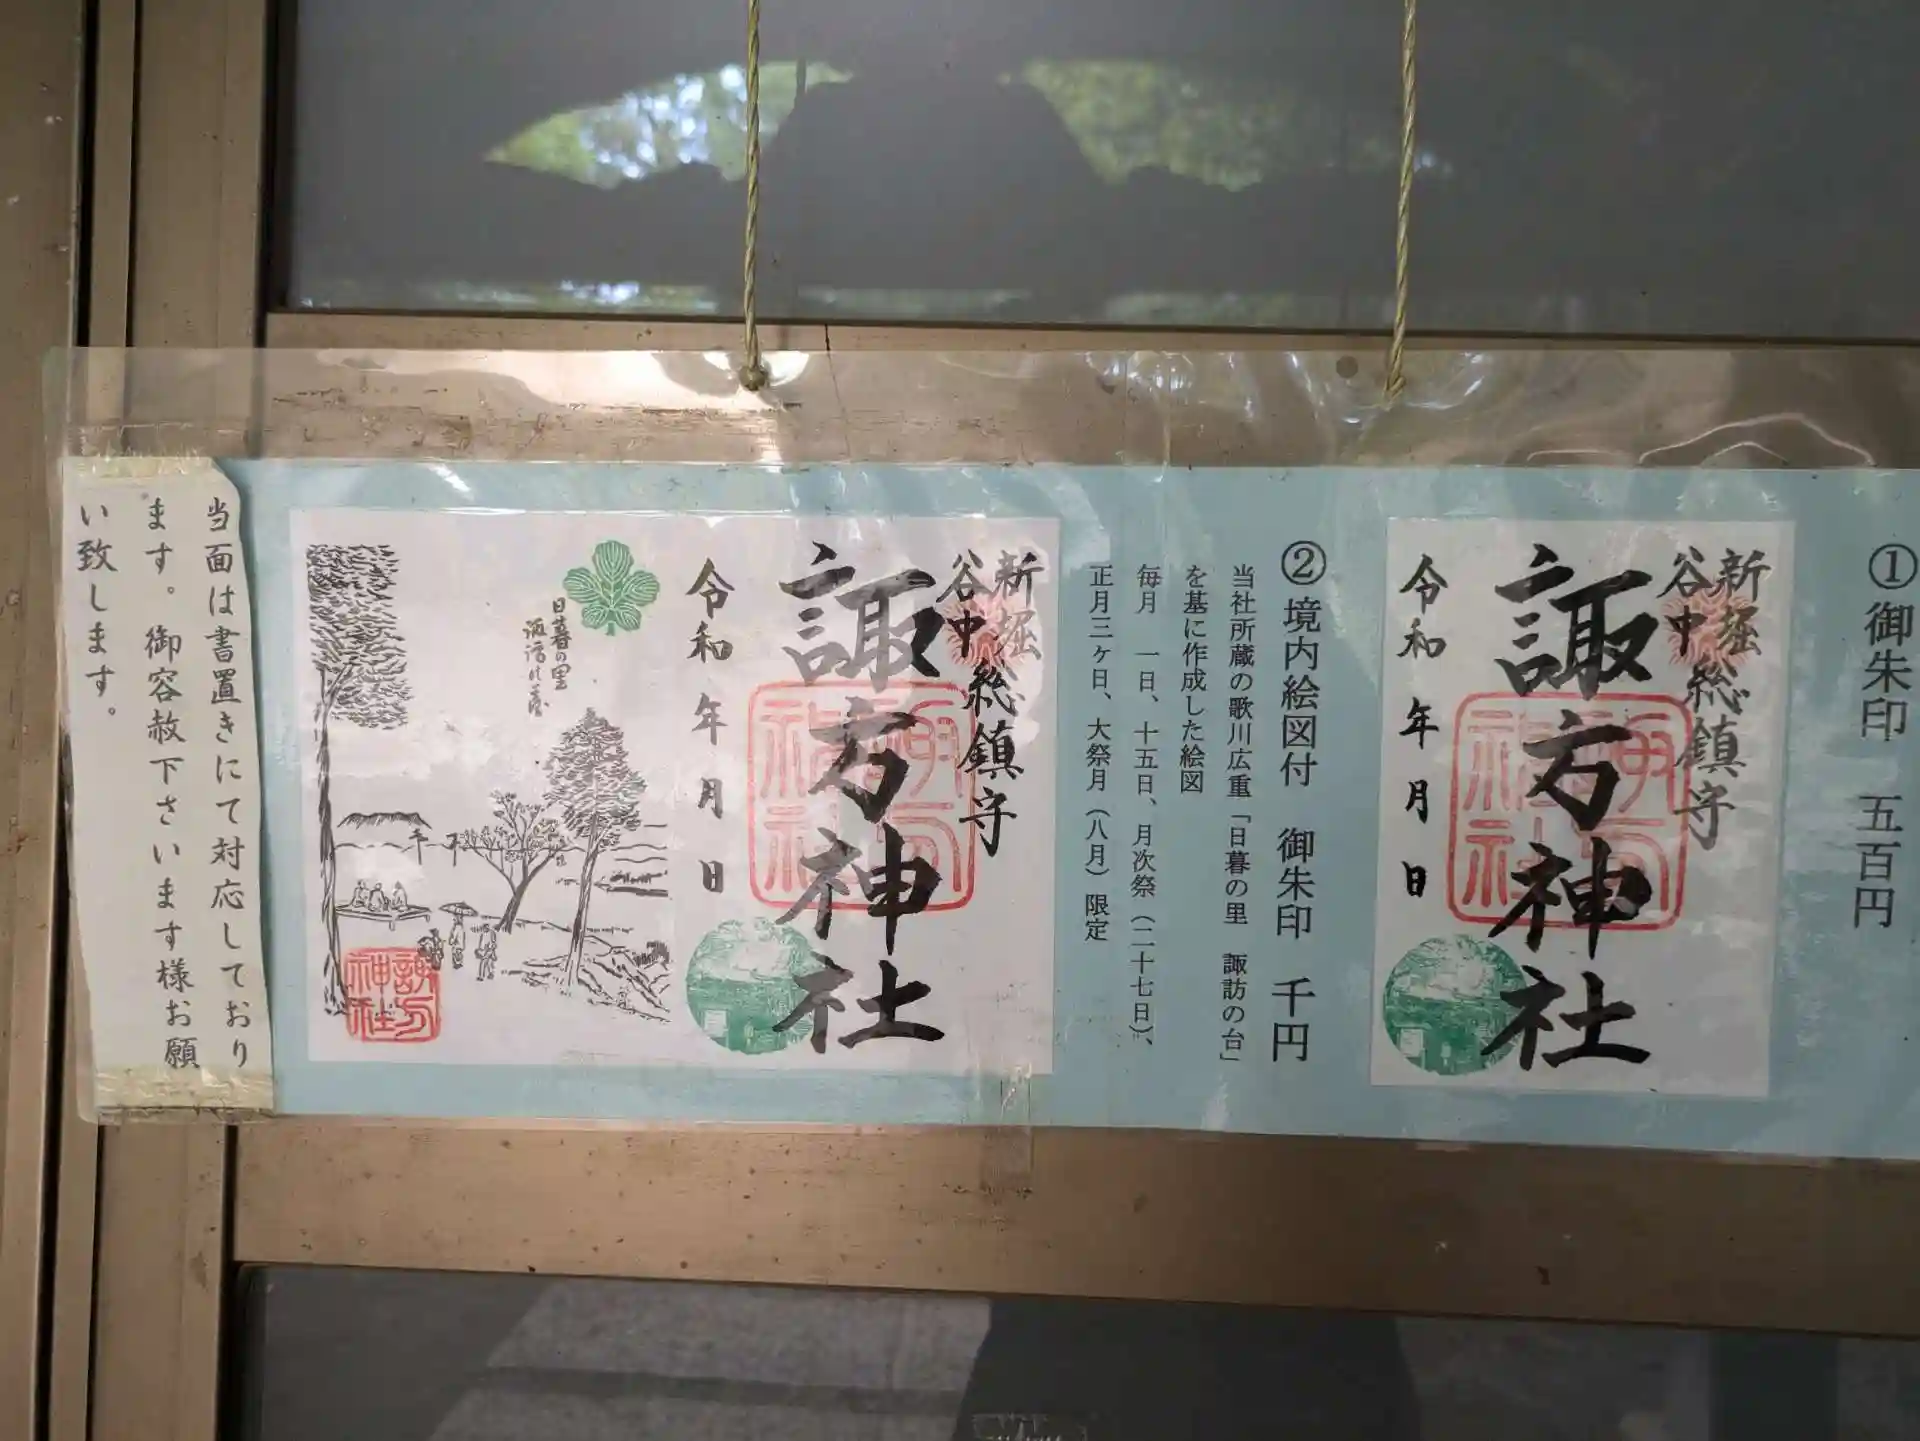 ①御朱印 五百円
新堀
谷中
総鎮守
諏方神社
令和 年 月 日
②境内絵図付 御朱印 千円
当社所蔵の歌川広重「日暮の里 諏訪の台」
を基に作成した絵図
毎月 一日、十五日、月次祭(二十七日)、
正月三ヶ日、大祭月(八月)限定
新堀
谷中
総鎮守
諏方神社
令和 年 月 日
日暮の里
諏方神社
当面は書置きにて対応しており
ます。御容赦下さいます様お願
い致します。